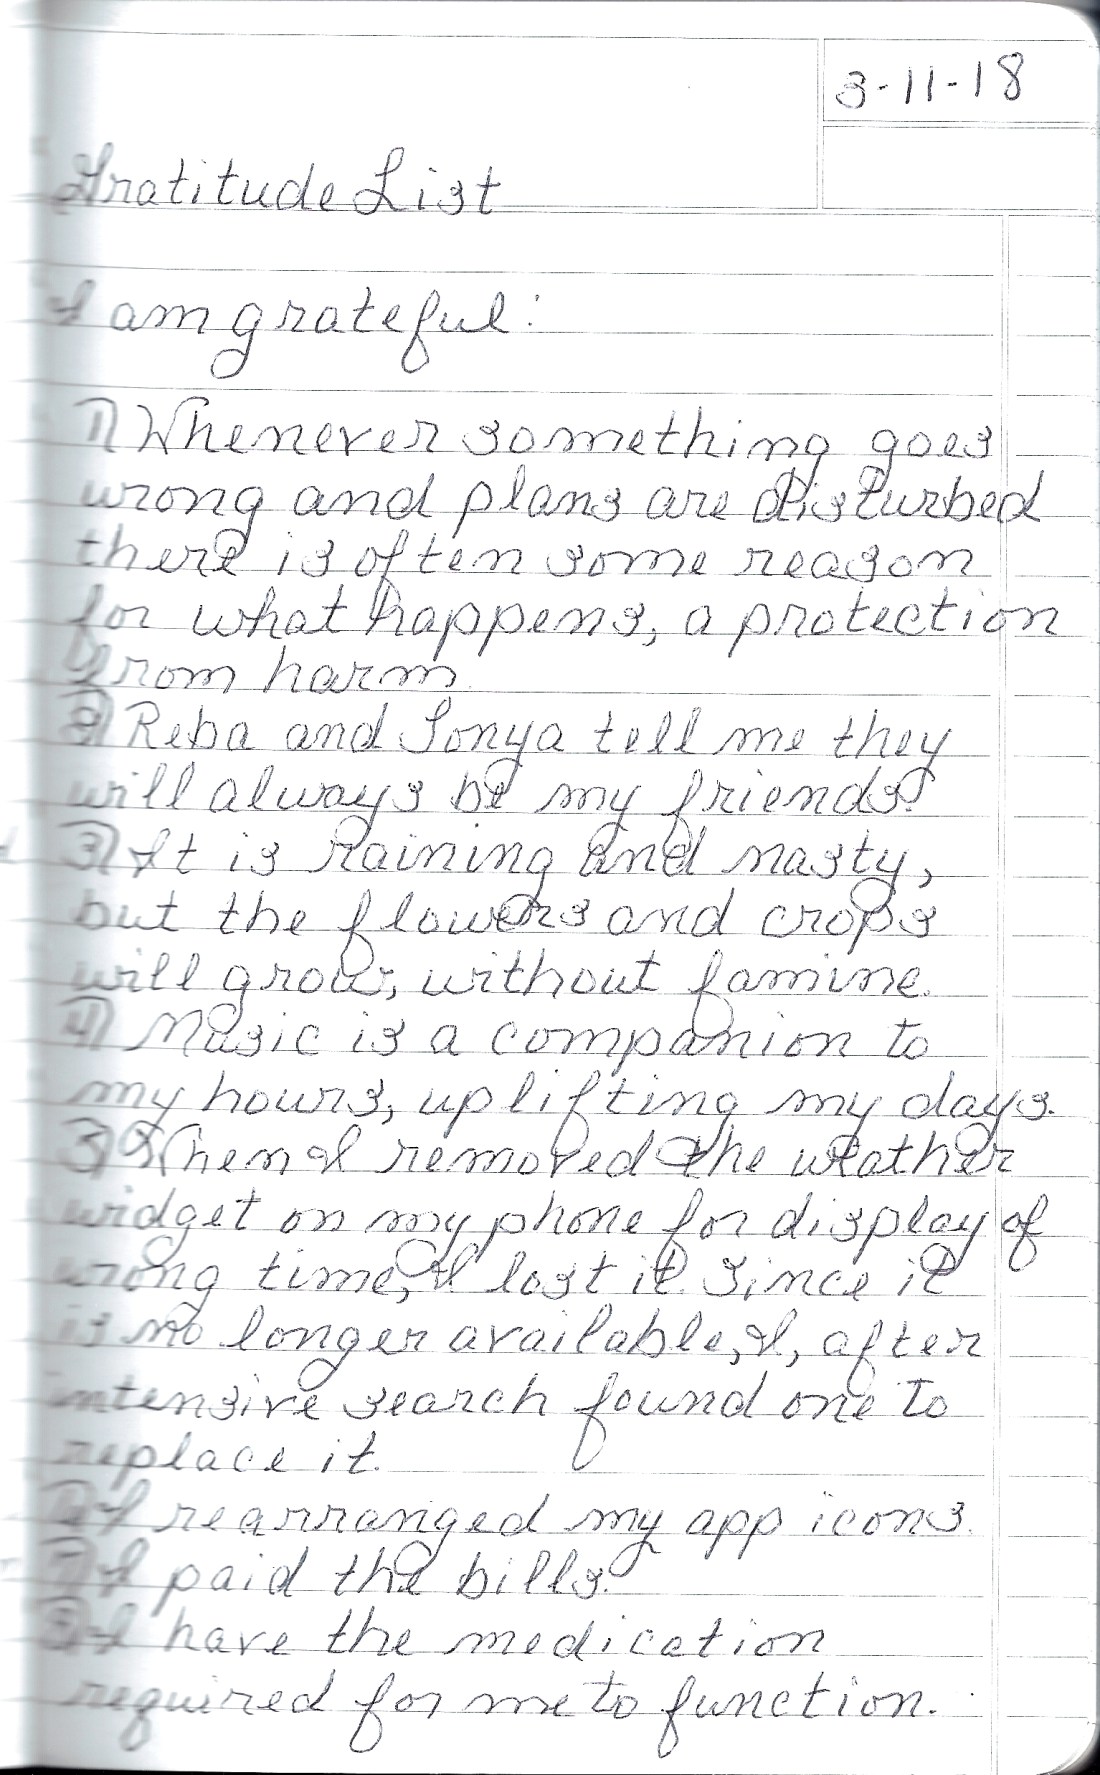 3-11-18
Gratitude List
I am grateful:
1) Whenever something goes
wrong and plans are disturbed
there is often some reason
for what happens, a protection
from harm
2) Reba and Sonya tell me they
will always be my friends.
3) It is raining and nasty,
but the flowers and crops
will grow, without famine.
4) Music is a companion to
my hours, uplifting my days.
5) When I removed the weather
widget on my phone for display of
wrong time, I lost it. Since it
is no longer available, I, after
intensive search found one to
replace it.
6) I rearranged my app icons.
7) I paid the bills.
8) I have the medication
required for me to function.